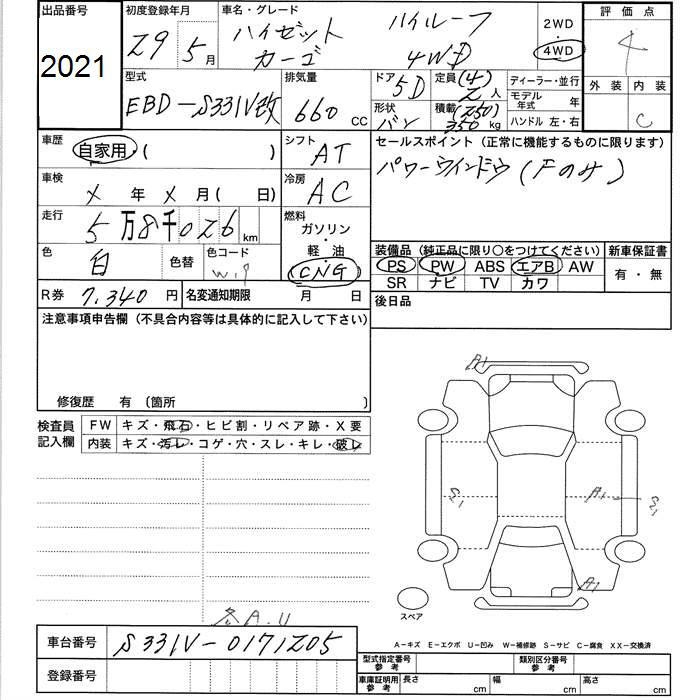 出品番号 初度登録年月 車名・グレード 評価点
2021
29年 5月 ハイゼットカーゴ ハイルーフ 4WD
2WD
4WD
4
型式 排気量 ドア 5D 定員 (4) 2人 ディーラー・並行
EBD-S331V改 660 CC 形状 バン 積載 (250) 350 kg モデル年式 年
ハンドル 左・右
外装 内装
C
車歴 自家用・( ) シフト AT
セールスポイント(正常に機能するものに限ります)
パワーウインドウ(Fのみ)
車検 メ 年 メ 月( 日) 冷房 AC
走行 5万8千026 km 燃料 ガソリン・軽油
CNG
色 白 色替 色コード W19
装備品(純正品に限り○をつけてください) 新車保証書
PS PW ABS エアB AW 有・無
SR ナビ TV カワ
R券 7,340 円 名変通知期限 月 日
後日品
注意事項申告欄(不具合内容等は具体的に記入して下さい)
修復歴 有(箇所 )
検査員記入欄 FW キズ・飛石・ヒビ割・リペア跡・X要
内装 キズ・汚レ・コゲ・穴・スレ・キレ・破レ
A1
A1
A1
スペア
各A.U
A-キズ E-エクボ U-凹み W-補修跡 S-サビ C-腐食 XX-交換済
車台番号 S331V-0171205
登録番号
型式指定番号 参考 類別区分番号 参考
車庫証明用 参考 長さ cm 幅 cm 高さ cm